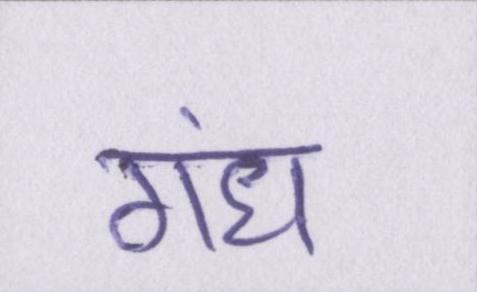 गंध